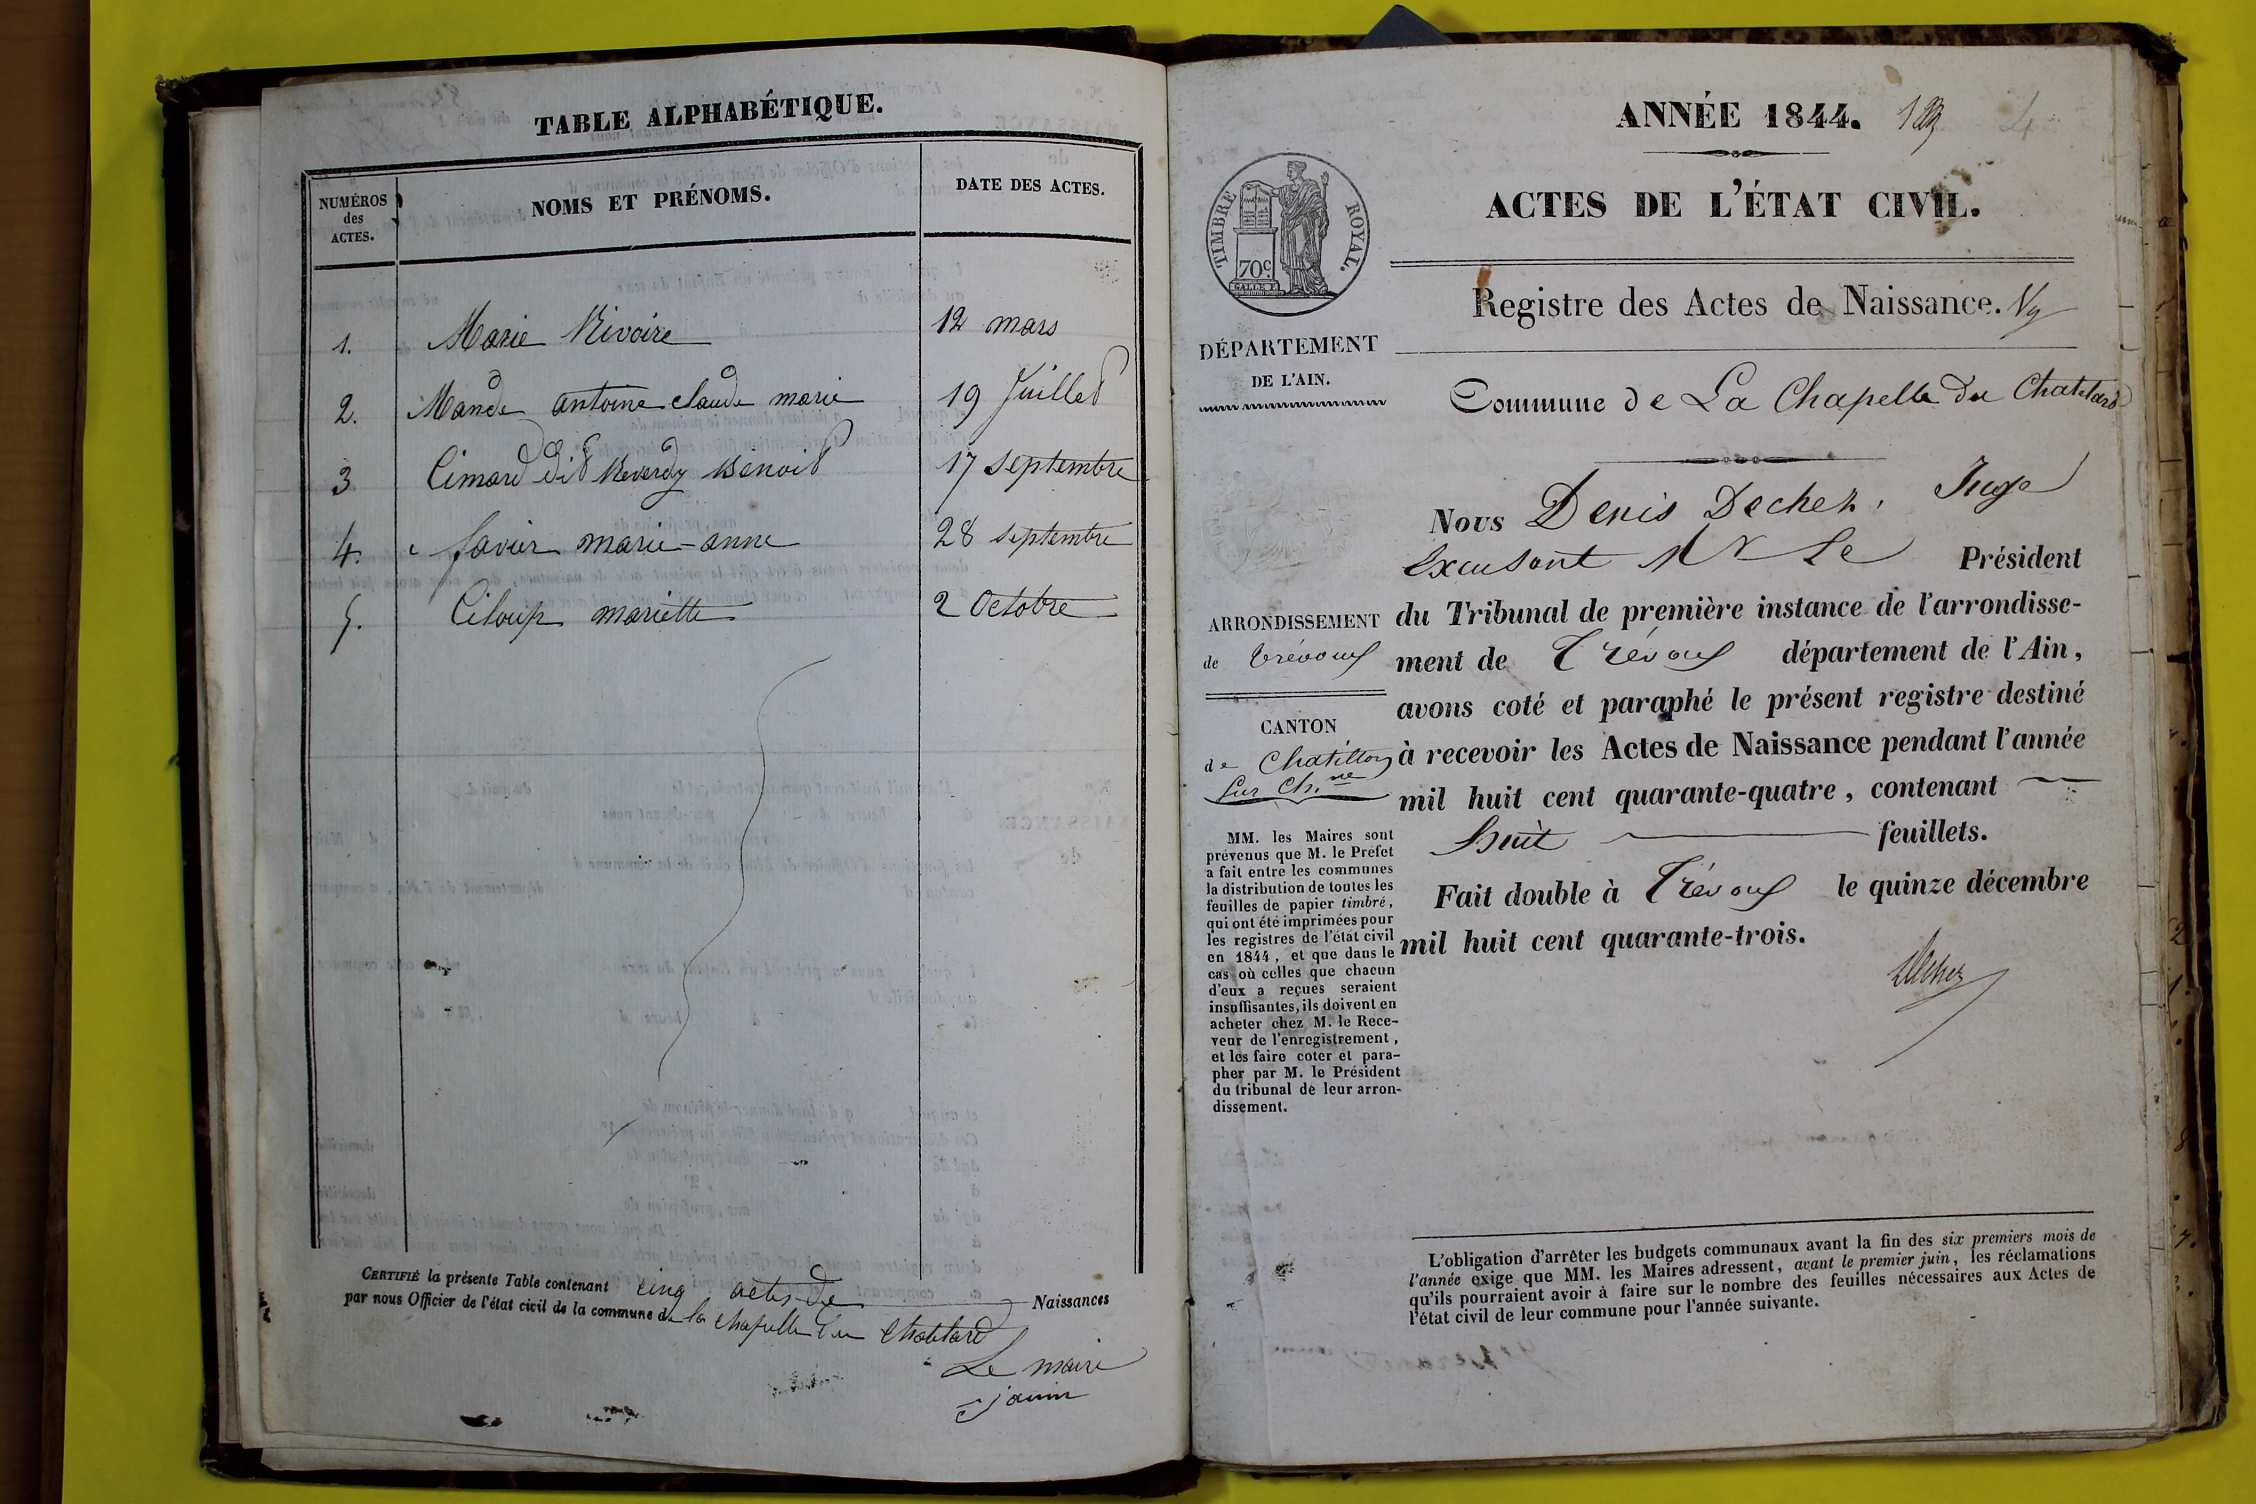 TABLE ALPHABÉTIQUE.
NUMÉROS
des
ACTES.
NOMS ET PRÉNOMS.
DATE DES ACTES.
1. Marie Rivoire 12 mars
2. Mande antoine claude marie 19 Juillet
3 Cimard dit Reverdy Benoit 17 septembre
4. favier marie-anne 28 septembre
5. Ciloup mariette 2 Octobre
CERTIFIÉ la présente Table contenant cinq actes de Naissances
par nous Officier de l'état civil de la commune de la chapelle du Chatelard
Le maire
janin
ANNÉE 1844.
ACTES DE L'ÉTAT CIVIL.
TIMBRE ROYAL.
70c.
Registre des Actes de Naissance.
DÉPARTEMENT
DE L'AIN.
Commune de La Chapelle du Chatelard
Nous Denis Dechez, Juge
Excusant Mr Le Président
du Tribunal de première instance de l'arrondisse-
ment de Trévoux département de l'Ain,
avons coté et paraphé le présent registre destiné
à recevoir les Actes de Naissance pendant l'année
mil huit cent quarante-quatre, contenant
huit feuillets.
Fait double à Trévoux le quinze décembre
mil huit cent quarante-trois.
Dechez
ARRONDISSEMENT
de Trévoux
CANTON
de Chatillon
sur Ch.ne
MM. les Maires sont
prévenus que M. le Préfet
a fait entre les communes
la distribution de toutes les
feuilles de papier timbré,
qui ont été imprimées pour
les registres de l'état civil
en 1844, et que dans le
cas où celles que chacun
d'eux a reçues seraient
insuffisantes, ils doivent en
acheter chez M. le Rece-
veur de l'enregistrement,
et les faire coter et para-
pher par M. le Président
du tribunal de leur arron-
dissement.
L'obligation d'arrêter les budgets communaux avant la fin des six premiers mois de
l'année exige que MM. les Maires adressent, avant le premier juin, les réclamations
qu'ils pourraient avoir à faire sur le nombre des feuilles nécessaires aux Actes de
l'état civil de leur commune pour l'année suivante.